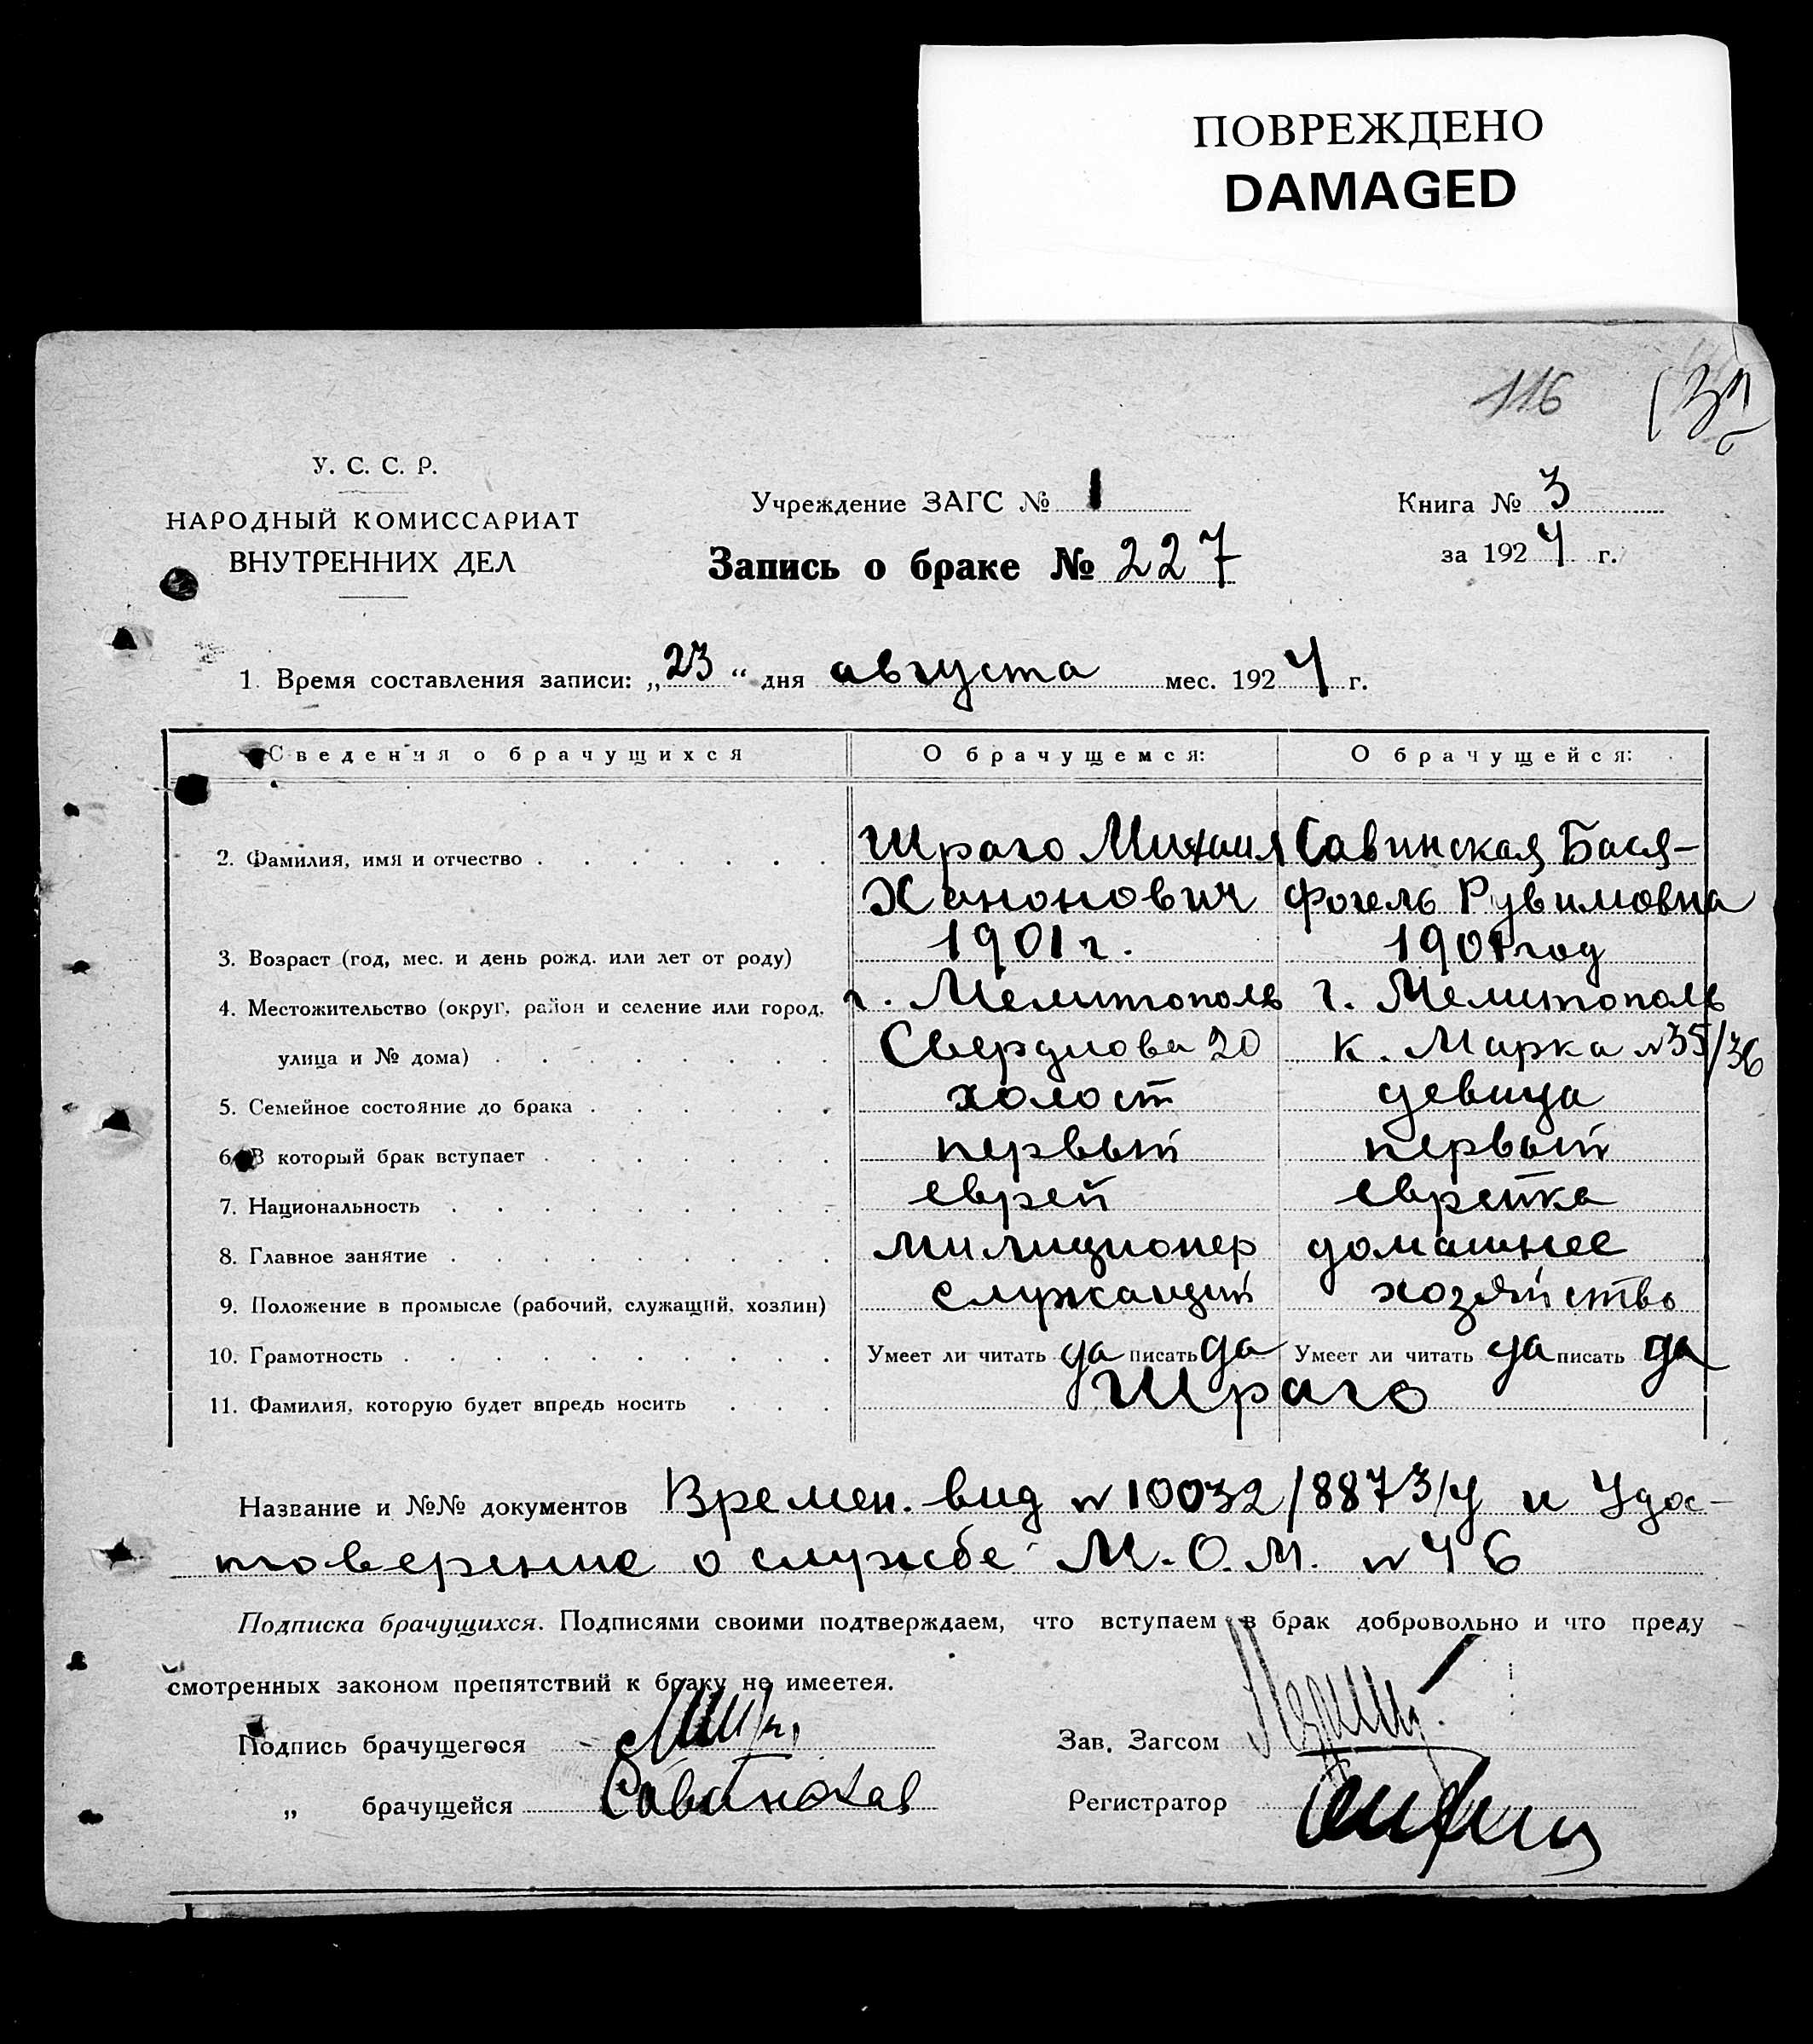 ПОВРЕЖДЕНО
DAMAGED
116
У. С. С. Р.
НАРОДНЫЙ КОМИССАРИАТ
ВНУТРЕННИХ ДЕЛ
Учреждение ЗАГС № 1
Книга № 3
Запись о браке № 227
за 1924 г.
1. Время составления записи: „23“ дня августа мес. 1924 г.
Сведения о брачущихся О брачущемся: О брачущейся:
2. Фамилия, имя и отчество Шраго Михаил Савинская Бася-
Хононович Фогель Рувимовна
3. Возраст (год, мес. и день рожд. или лет от роду) 1901 г. 1901 год
4. Местожительство (округ, район и селение или город, г. Мелитополь г. Мелитополь
улица и № дома) Свердлова 20 К. Марка №35/36
5. Семейное состояние до брака холост девица
6. В который брак вступает первый первый
7. Национальность еврей еврейка
8. Главное занятие милиционер домашнее
9. Положение в промысле (рабочий, служащий, хозяин) служащий хозяйство
10. Грамотность Умеет ли читать да писать да Умеет ли читать да писать да
11. Фамилия, которую будет впредь носить Шраго
Название и №№ документов Времен. вид №10032/8873/у и Удос-
товерение о службе М.О.М. №46
Подписка брачущихся. Подписями своими подтверждаем, что вступаем в брак добровольно и что преду
смотренных законом препятствий к браку не имеетея.
Подпись брачущегося
Зав. Загсом
„ брачущейся
Регистратор